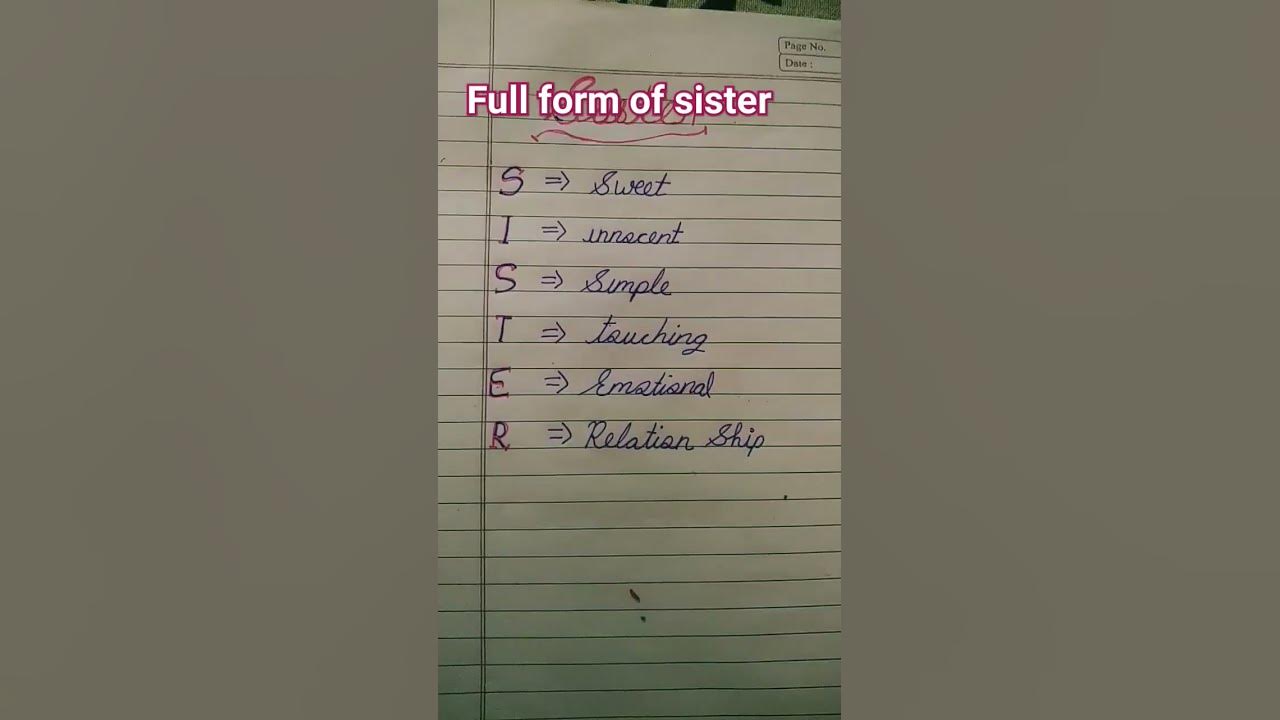 Page No.
Date :
Full form of sister
S => Sweet
I => innocent
S => Simple
T => touching
E => Emotional
R => Relation Ship